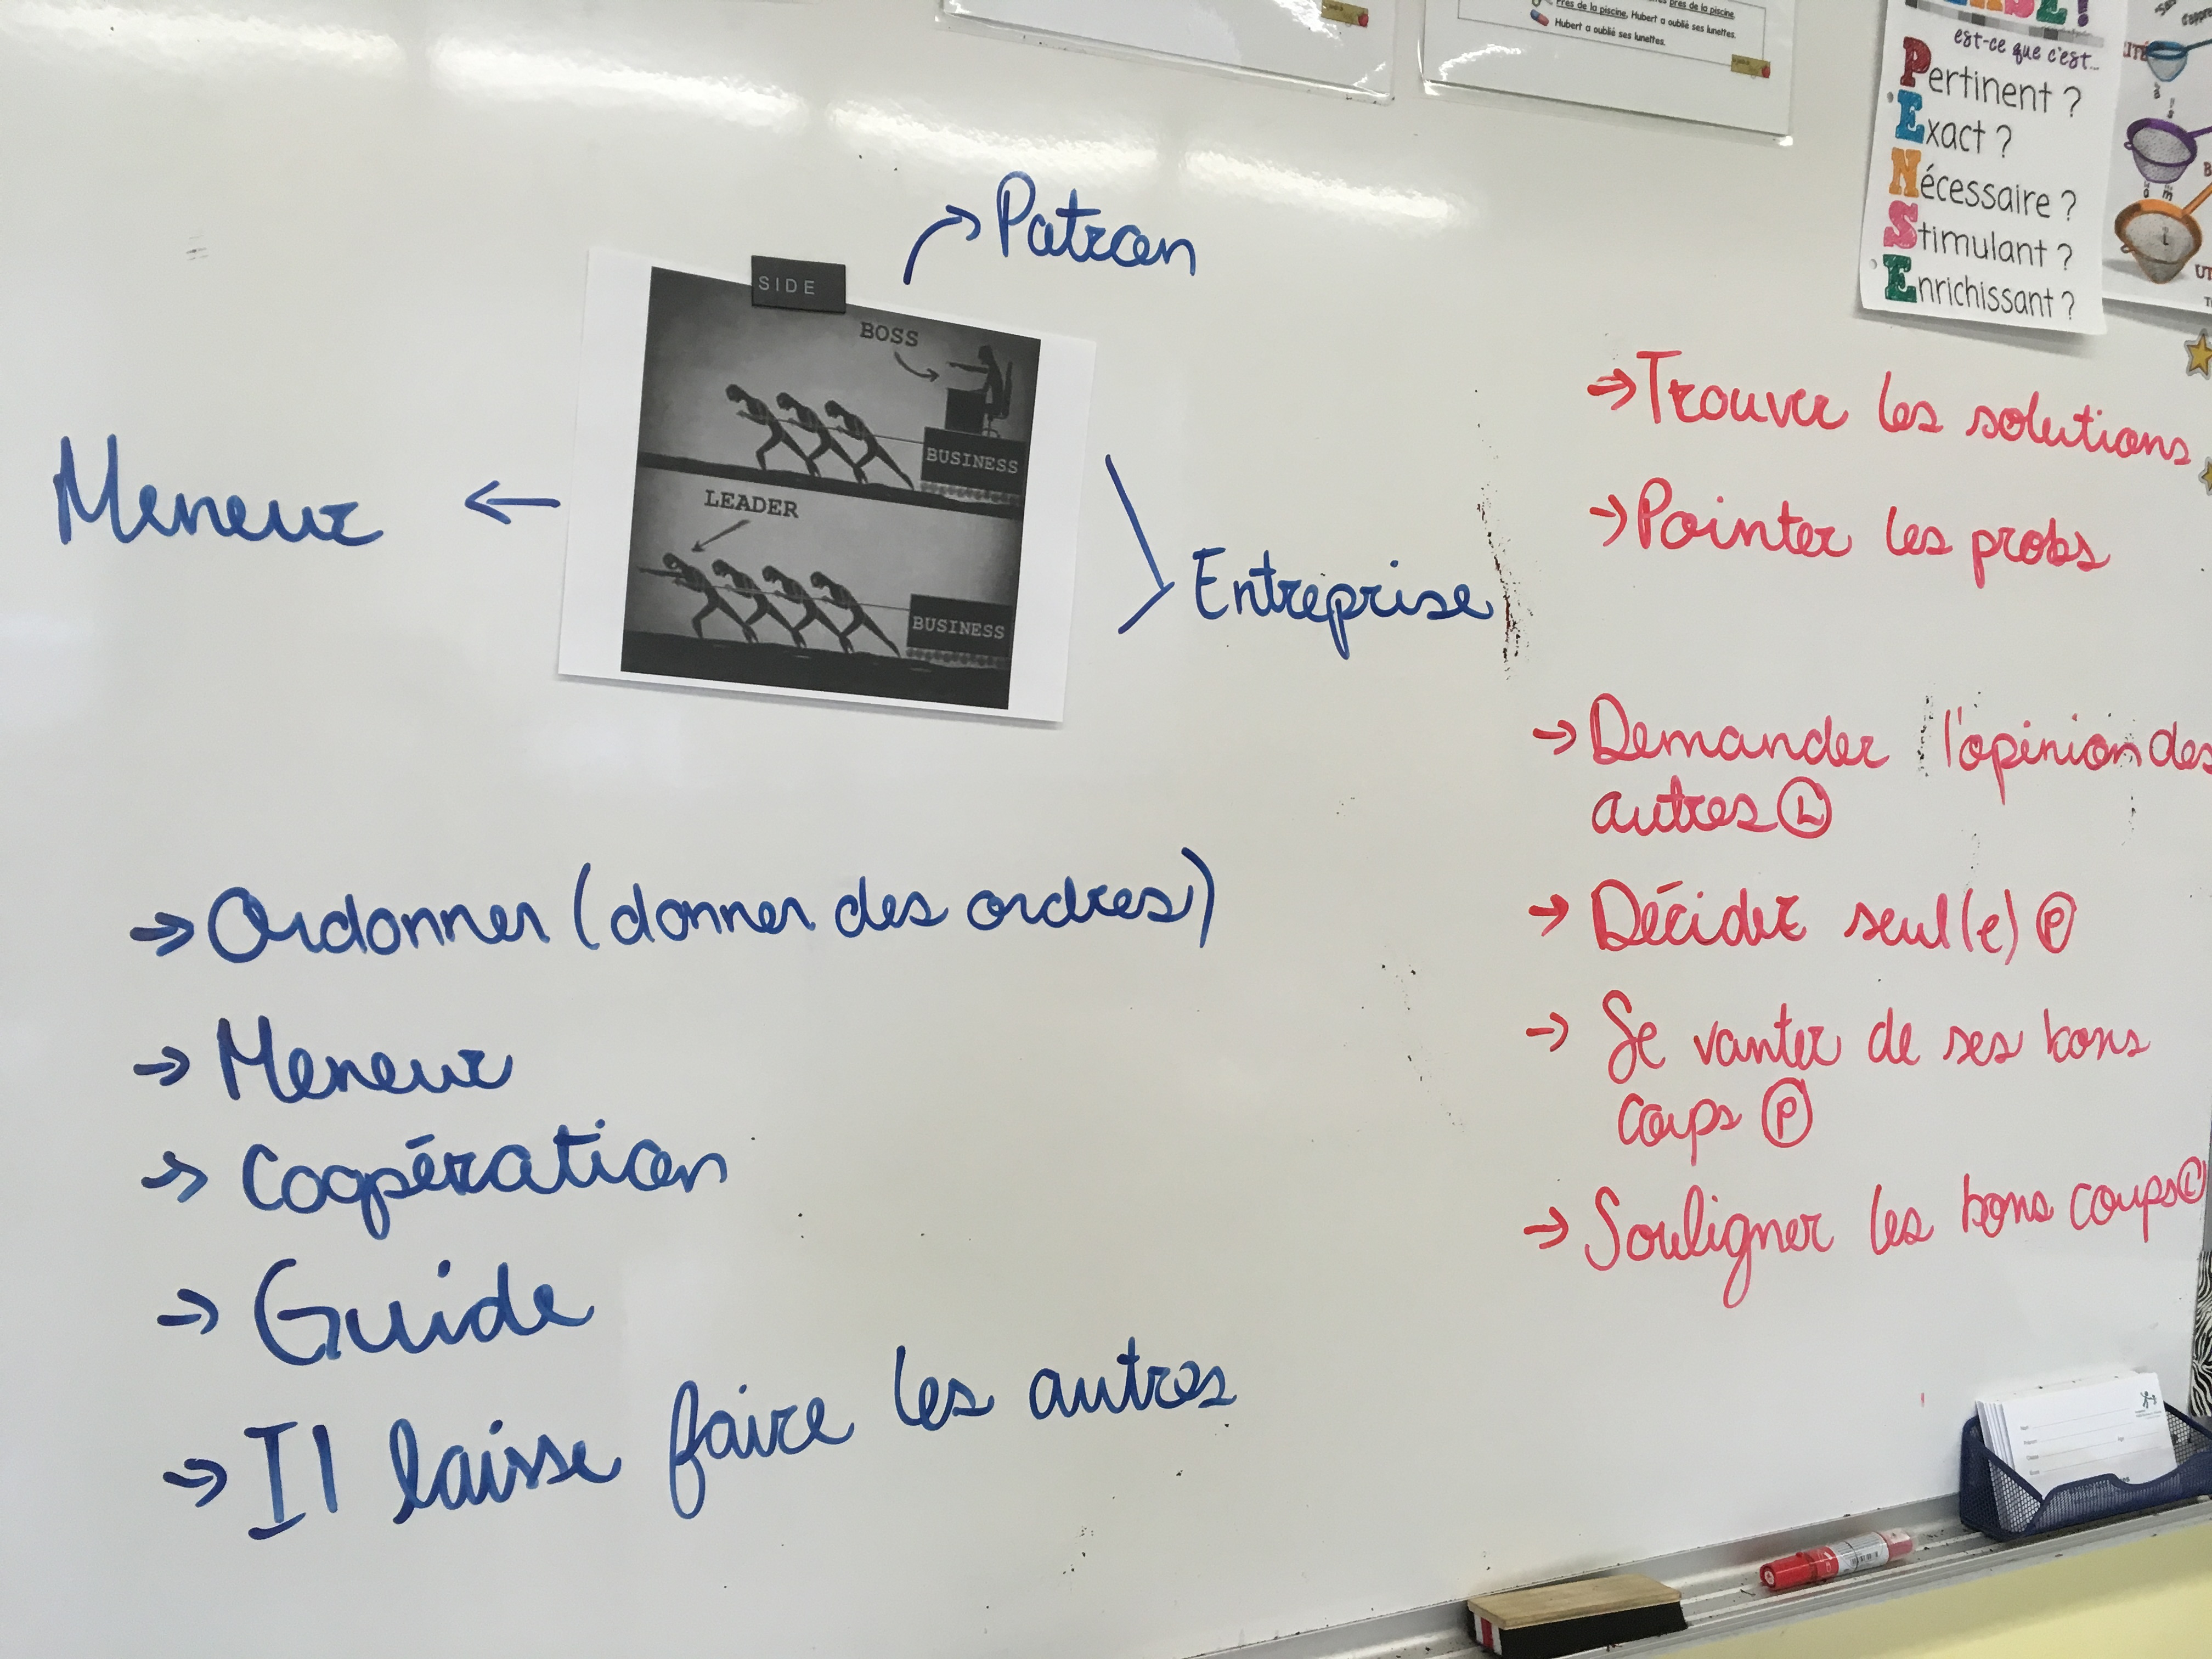 Près de la piscine, Hubert a oublié ses lunettes.
Hubert a oublié ses lunettes.
est-ce que c'est...
Pertinent ?
Exact ?
Nécessaire ?
Stimulant ?
Enrichissant ?
Patron
SIDE
BOSS
BUSINESS
LEADER
BUSINESS
Meneur
Entreprise
→ Ordonner (donner des ordres)
→ Meneur
→ Coopération
→ Guide
→ Il laisse faire les autres
→ Trouver les solutions
→ Pointer les probs
→ Demander l'opinion des
autres Ⓛ
→ Décider seul(e) Ⓟ
→ Se vanter de ses bons
coups Ⓟ
→ Souligner les bons coups Ⓛ